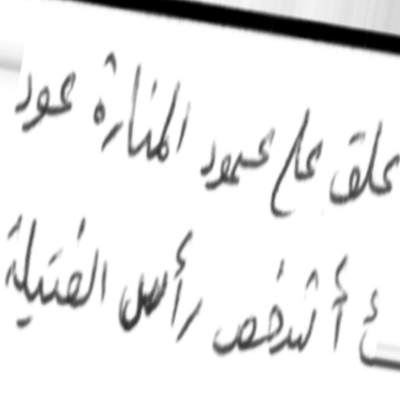 علق على عمود المنارة عود
أ أشخص رأس الفتيلة